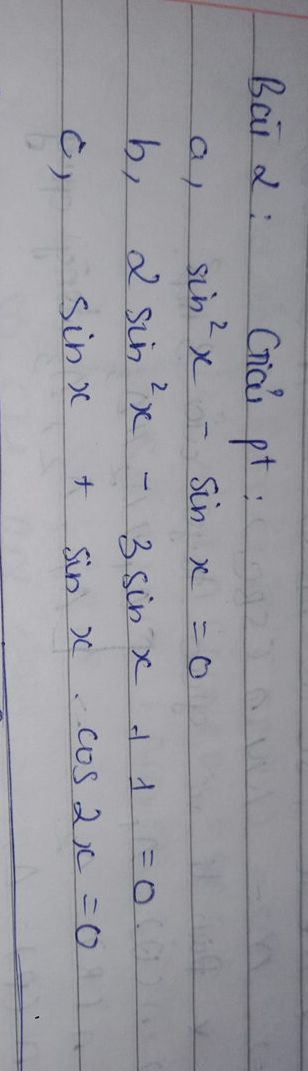 Bài 2: Giải pt:
a, sin²x - sin x = 0
b, 2 sin²x - 3 sin x + 1 = 0
c, sin x + sin x . cos 2x = 0